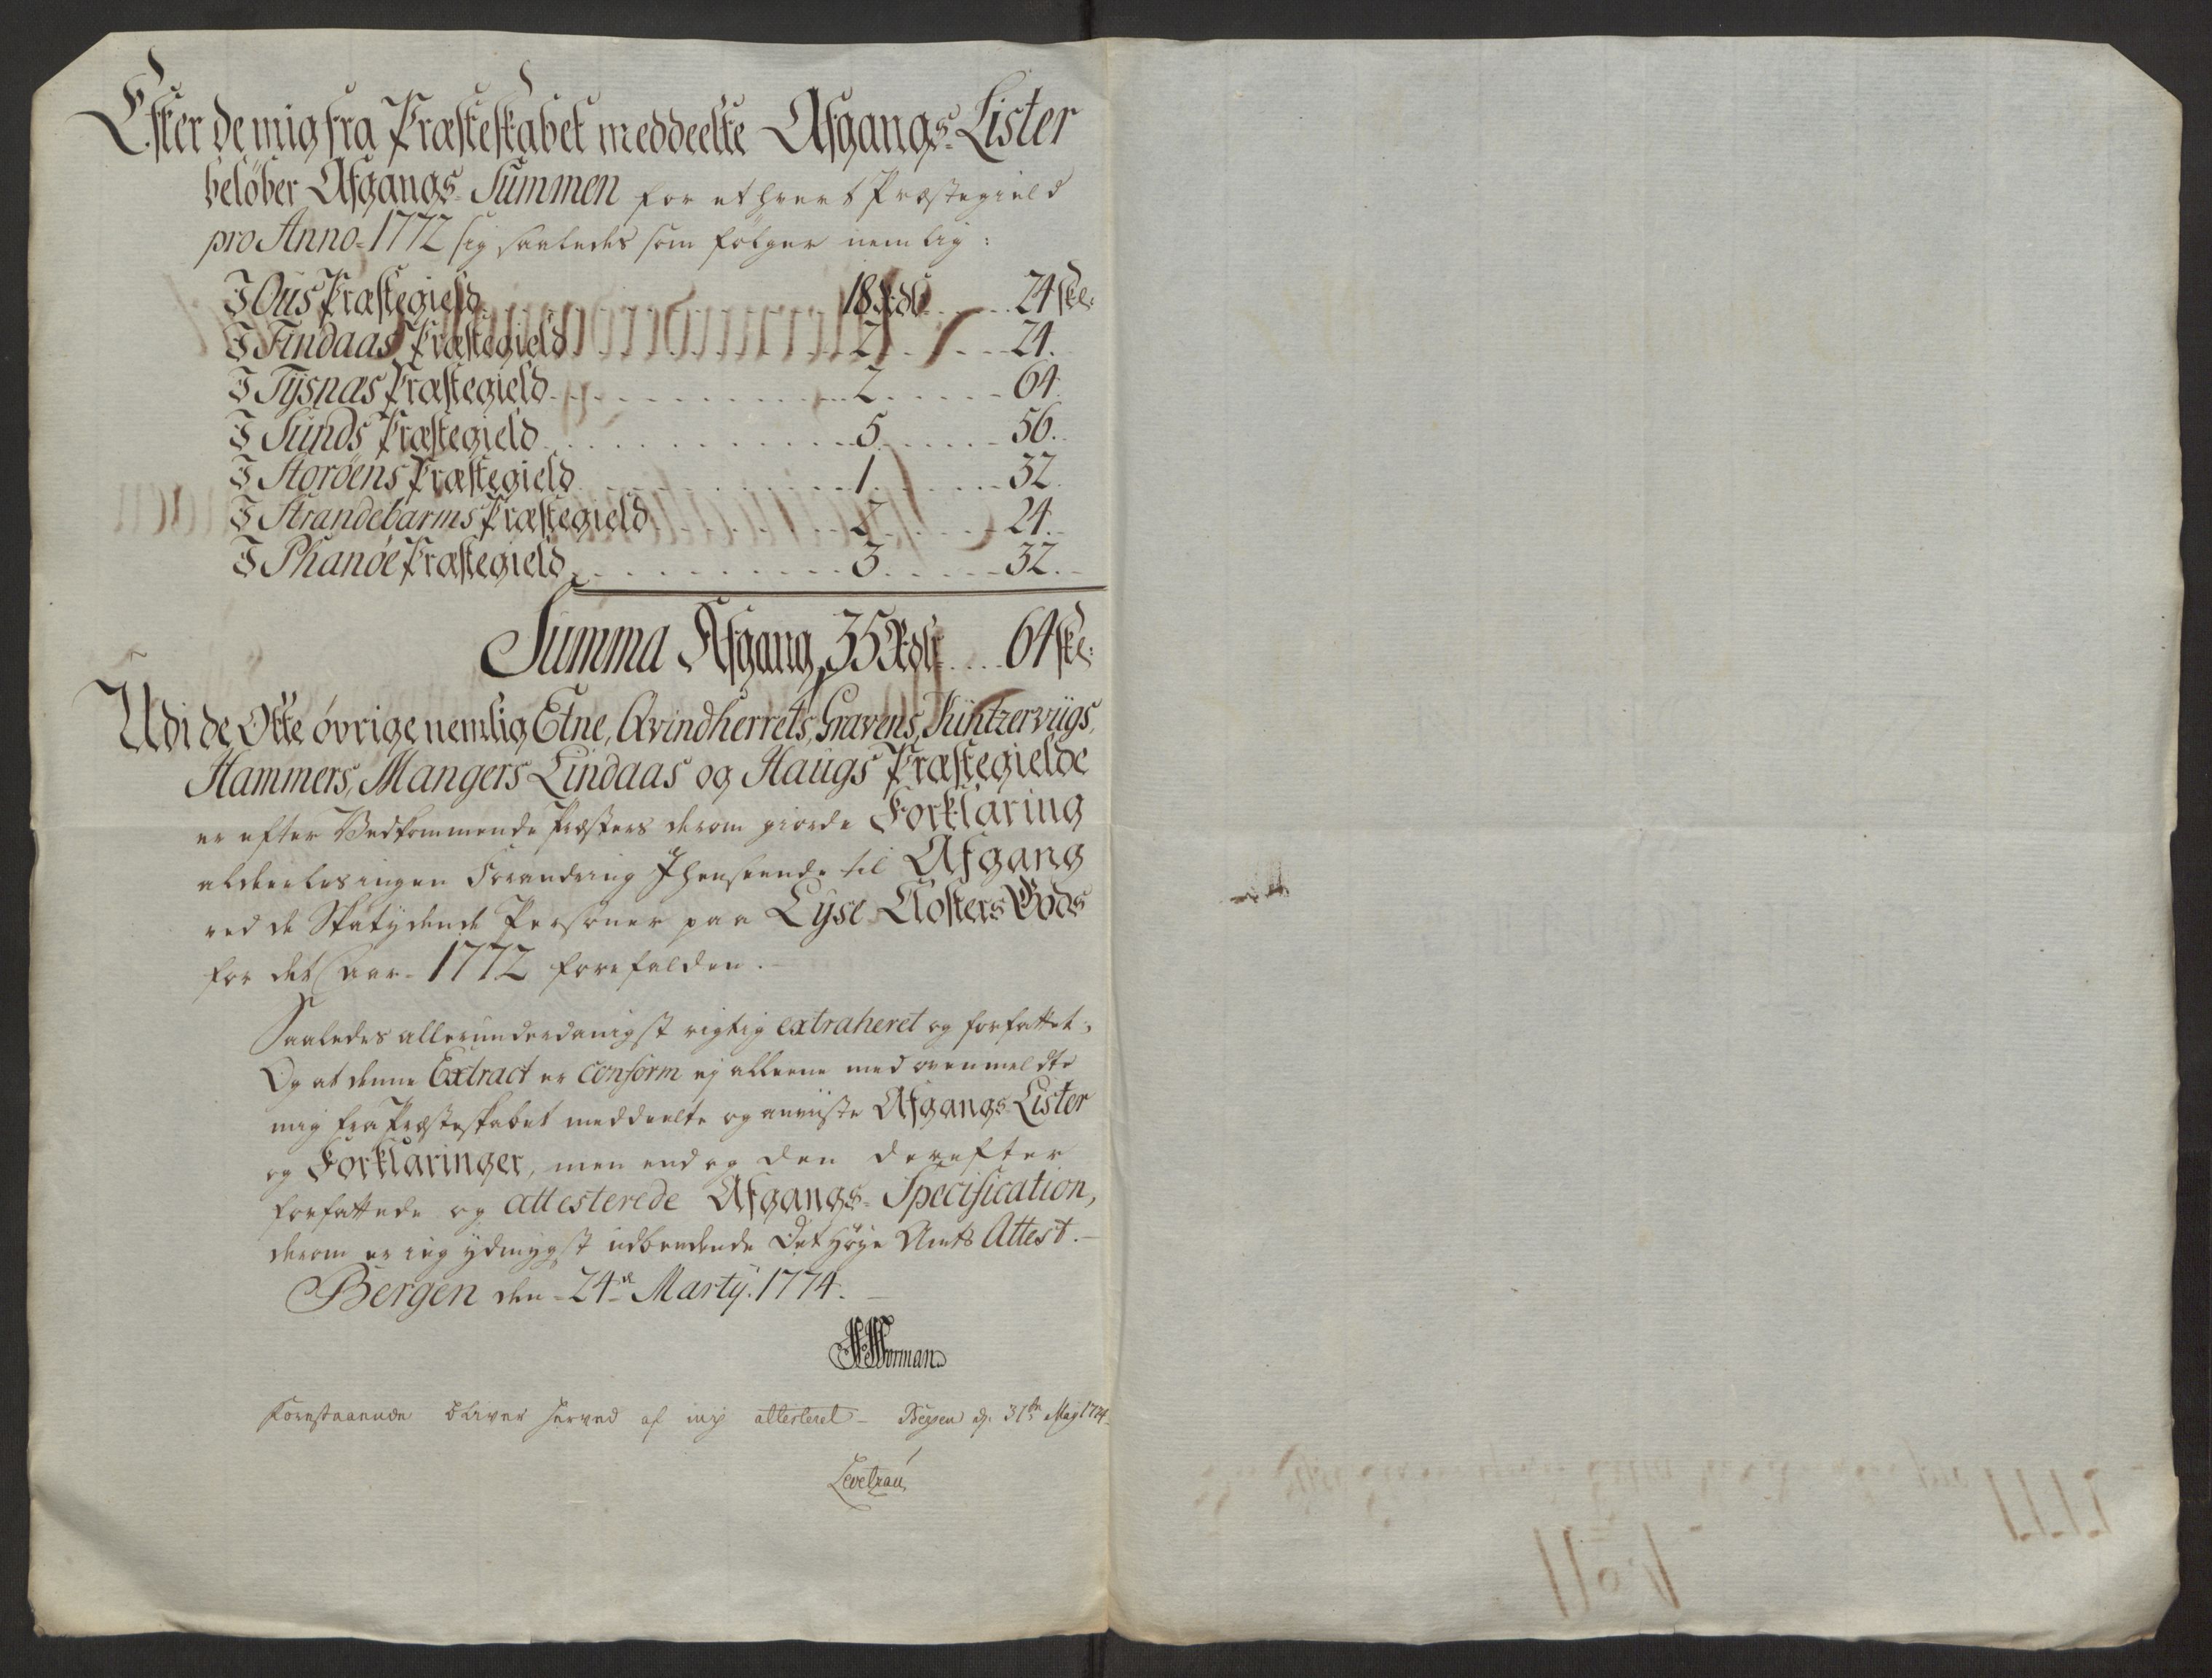 Efter de mig fra Præsteskabet meddeelte Afgangs-Lister
beløber Afgangs-Summen for ethvert Præstegield
pro Anno-1772 sig saaledes som følger nemlig:
I Ous Præstegield 18 Rdlr 24 skl:
I Findaas Præstegield 2 24.
I Tysnæs Præstegield 2 64
I Sunds Præstegield 5 56.
I Storöens Præstegield 1 32.
I Strandebarms Præstegield 2 24.
I Phanöe Præstegield 3 32.
Summa Afgang 35 Rdlr 64 skl:
Udi de Otte övrige nemlig Etne, Qvindherrets, Gravens, Kintzerviigs,
Hammers, Mangers Lindaas og Haugs Præstegielde
er efter Vedkommende Præsters derom giorde Forklaring
aldeeles ingen Forandring Ihenseende til Afgang
ved de Skatydende Personer paa Lyse Closters Gods
for det Aar-1772 forefalden.
Saaledes allerunderdanigst rigtig extraheret og forfattet;
Og at denne Extract er conform ej alleene med ovenmeldte
mig fra Præsteskabet meddeelte og anviiste Afgangs-Lister
og Forklaringer, men endog den derefter
forfattede og attesterede Afgangs-Specification,
derom er jeg ydmygst udbedende Det Høye Amts Attest.
Bergen den 24de Martÿ. 1774.
Worman
Forestaaende bliver herved af mig attesteret - Bergen d. 31te Maÿ 1774
Levetzau